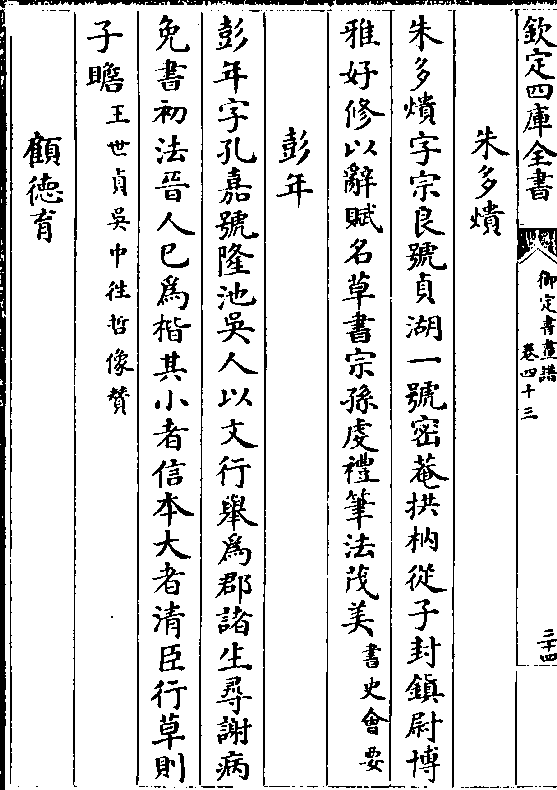 欽定四庫全書
御定書畫譜
卷四十三
三十四
朱多熿
朱多熿字宗良號貞湖一號密菴拱枘從子封鎮尉博
雅好修以辭賦名草書宗孫虔禮筆法茂美書史會要
彭年
彭年字孔嘉號隆池吳人以文行舉為郡諸生尋謝病
免書初法晉人已為楷其小者信本大者清臣行草則
子瞻王世貞吳中往哲像贊
顧德育